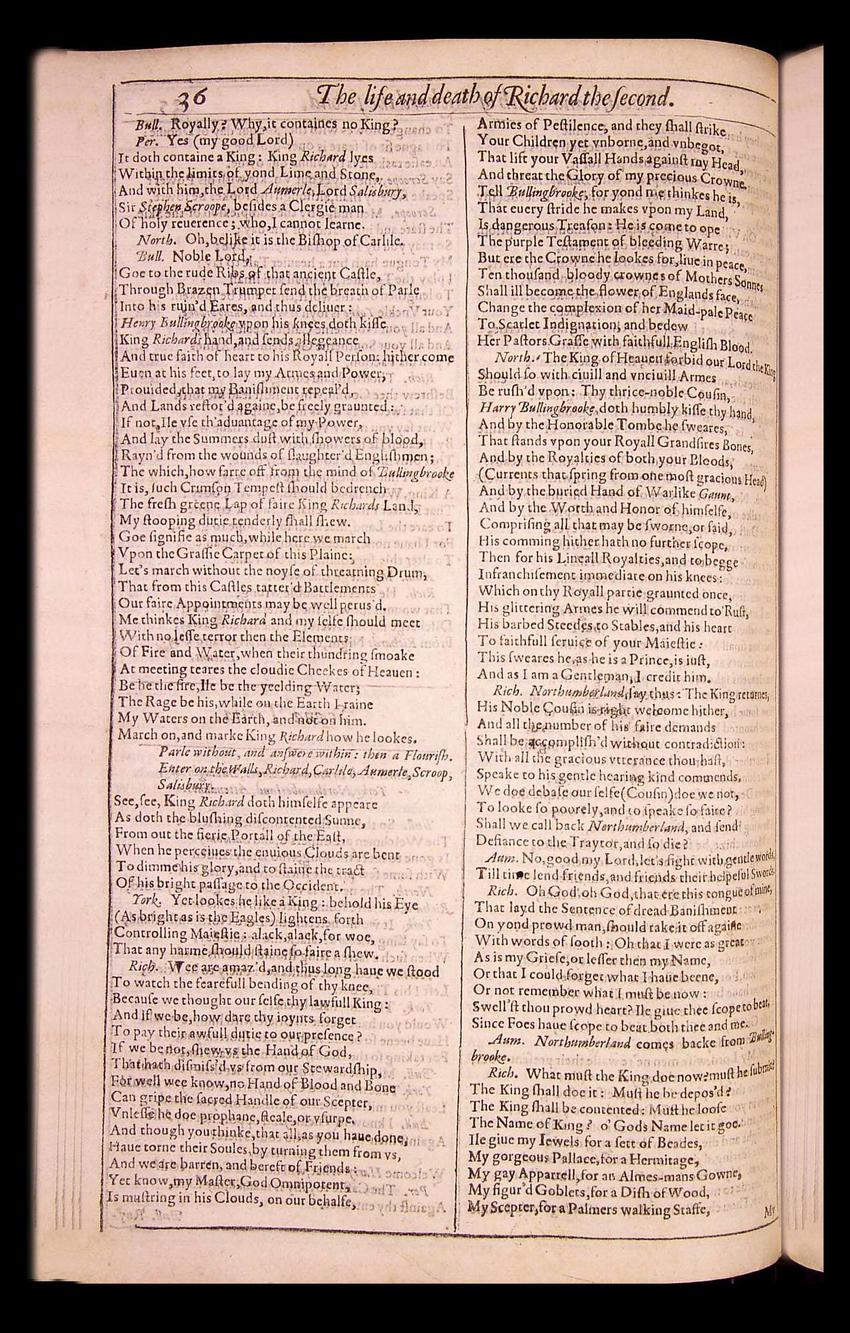 36
The life and death of Richard the ſecond.
Bull. Royally? Why, it containes no King?
Per. Yes (my good Lord)
It doth containe a King: King Richard lyes
Within the limits of yond Lime and Stone,
And with him, the Lord Aumerle, Lord Salisbury,
Sir Stephen Scroope, beſides a Clergie man
Of holy reuerence; who, I cannot learne.
North. Oh, belike it is the Biſhop of Carlile.
Bull. Noble Lord,
Goe to the rude Ribs of that ancient Caſtle,
Through Brazen Trumpet ſend the breath of Parle
Into his ruin'd Eares, and thus deliuer:
Henry Bullingbrooke vpon his knees doth kiſſe
King Richards hand, and ſends allegeance
And true faith of heart to his Royall Perſon: hither come
Euen at his feet, to lay my Armes and Power,
Prouided, that my Baniſhment repeal'd,
And Lands reſtor'd againe, be freely graunted:
If not, Ile vſe th'aduantage of my Power,
And lay the Summers duſt with ſhowers of blood,
Rayn'd from the wounds of ſlaughter'd Engliſhmen;
The which, how farre off from the mind of Bullingbrooke
It is, ſuch Crimſon Tempeſt ſhould bedrench
The freſh greene Lap of faire King Richards Land,
My ſtooping dutie tenderly ſhall ſhew.
Goe ſignifie as much, while here we march
Vpon the Graſſie Carpet of this Plaine:
Let's march without the noyſe of threatning Drum,
That from this Caſtles tatter'd Battlements
Our faire Appointments may be well perus'd.
Me thinkes King Richard and my ſelfe ſhould meet
With no leſſe terror then the Elements
Of Fire and Water, when their thundring ſmoake
At meeting teares the cloudie Cheekes of Heauen:
Be he the fire, Ile be the yeelding Water;
The Rage be his, while on the Earth I raine
My Waters on the Earth, and not on him.
March on, and marke King Richard how he lookes.
Parle without, and anſwere within: then a Flouriſh.
Enter on the Walls, Richard, Carlile, Aumerle, Scroop,
Salisbury.
See, ſee, King Richard doth himſelfe appeare
As doth the bluſhing diſcontented Sunne,
From out the fierie Portall of the Eaſt,
When he perceiues the enuious Clouds are bent
To dimme his glory, and to ſtaine the tract
Of his bright paſſage to the Occident.
York. Yet lookes he like a King: behold his Eye
(As bright as is the Eagles) lightens forth
Controlling Maieſtie: alack, alack, for woe,
That any harme ſhould ſtaine ſo faire a ſhew.
Rich. Wee are amaz'd, and thus long haue we ſtood
To watch the fearefull bending of thy knee,
Becauſe we thought our ſelfe thy lawfull King:
And if we be, how dare thy ioynts forget
To pay their awfull dutie to our preſence?
If we be not, ſhew vs the Hand of God,
That hath diſmiſs'd vs from our Stewardſhip,
For well wee know, no Hand of Blood and Bone
Can gripe the ſacred Handle of our Scepter,
Vnleſſe he doe prophane, ſteale, or vſurpe.
And though you thinke, that all, as you haue done,
Haue torne their Soules, by turning them from vs,
And we are barren, and bereft of Friends:
Yet know, my Maſter, God Omnipotent,
Is muſtring in his Clouds, on our behalfe,
Armies of Peſtilence, and they ſhall ſtrike
Your Children yet vnborne, and vnbegot,
That lift your Vaſſall Hands againſt my Head,
And threat the Glory of my precious Crowne.
Tell Bullingbrooke, for yond me thinkes he is,
That euery ſtride he makes vpon my Land,
Is dangerous Treaſon: He is come to ope
The purple Teſtament of bleeding Warre;
But ere the Crowne he lookes for, liue in peace,
Ten thouſand bloody crownes of Mothers Sonnes
Shall ill become the flower of Englands face,
Change the complexion of her Maid-pale Peace
To Scarlet Indignation, and bedew
Her Paſtors Graſſe with faithfull Engliſh Blood.
North. The King of Heauen forbid our Lord the King
Should ſo with ciuill and vnciuill Armes
Be ruſh'd vpon: Thy thrice-noble Couſin,
Harry Bullingbrooke, doth humbly kiſſe thy hand,
And by the Honorable Tombe he ſweares,
That ſtands vpon your Royall Grandſires Bones,
And by the Royalties of both your Bloods,
(Currents that ſpring from one moſt gracious Head)
And by the buried Hand of Warlike Gaunt,
And by the Worth and Honor of himſelfe,
Compriſing all that may be ſworne, or ſaid,
His comming hither hath no further ſcope,
Then for his Lineall Royalties, and to begge
Infranchiſement immediate on his knees:
Which on thy Royall partie graunted once,
His glittering Armes he will commend to Ruſt,
His barbed Steedes to Stables, and his heart
To faithfull ſeruice of your Maieſtie:
This ſweares he, as he is a Prince, is iuſt,
And as I am a Gentleman, I credit him.
Rich. Northumberland, ſay thus: The King returnes,
His Noble Couſin is right welcome hither,
And all the number of his faire demands
Shall be accompliſh'd without contradiction:
With all the gracious vtterance thou haſt,
Speake to his gentle hearing kind commends.
We doe debaſe our ſelfe (Couſin) doe we not,
To looke ſo poorely, and to ſpeake ſo faire?
Shall we call back Northumberland, and ſend
Defiance to the Traytor, and ſo die?
Aum. No, good my Lord, let's fight with gentle words,
Till time lend friends, and friends their helpeful Swords.
Rich. Oh God, oh God, that ere this tongue of mine,
That layd the Sentence of dread Baniſhment
On yond prowd man, ſhould take it off againe
With words of ſooth: Oh that I were as great
As is my Griefe, or leſſer then my Name,
Or that I could forget what I haue beene,
Or not remember what I muſt be now:
Swell'ſt thou prowd heart? Ile giue thee ſcope to beat,
Since Foes haue ſcope to beat both thee and me.
Aum. Northumberland comes backe from Bulling-
brooke.
Rich. What muſt the King doe now? muſt he ſubmit?
The King ſhall doe it: Muſt he be depos'd?
The King ſhall be contented: Muſt he looſe
The Name of King? o' Gods Name let it goe.
Ile giue my Iewels for a ſett of Beades,
My gorgeous Pallace, for a Hermitage,
My gay Apparrell, for an Almes-mans Gowne,
My figur'd Goblets, for a Diſh of Wood,
My Scepter, for a Palmers walking Staffe,
My